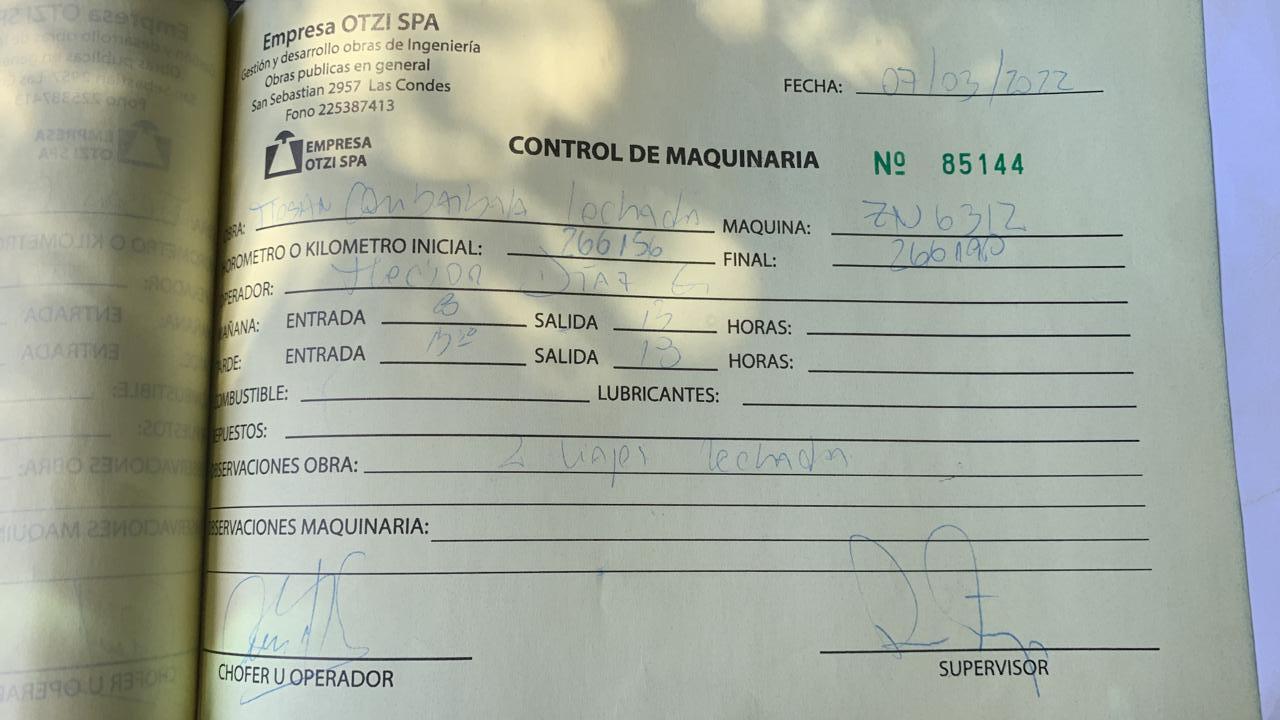 Empresa OTZI SPA
Gestión y desarrollo obras de Ingeniería
Obras publicas en general
San Sebastian 2957 Las Condes
Fono 225387413
FECHA: 07/03/2022
EMPRESA
OTZI SPA
CONTROL DE MAQUINARIA Nº 85144
OBRA: lechada MAQUINA: ZN 6312
HOROMETRO O KILOMETRO INICIAL: 266156 FINAL:
OPERADOR: Hector DIAZ G
MAÑANA: ENTRADA 8 SALIDA 13 HORAS:
TARDE: ENTRADA SALIDA HORAS:
COMBUSTIBLE: LUBRICANTES:
REPUESTOS:
OBSERVACIONES OBRA: 2 viajes lechada
OBSERVACIONES MAQUINARIA:
CHOFER U OPERADOR SUPERVISOR